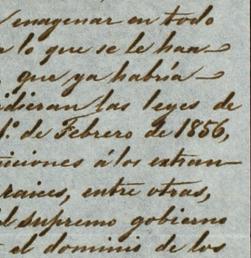 enagenar en todo
lo que se le haa-
que ya habria-
idieran las leyes de
1º. de Febrero de 1856,
iciones á los extran
raices, entre otras,
el supremo gobierno
el dominio de los